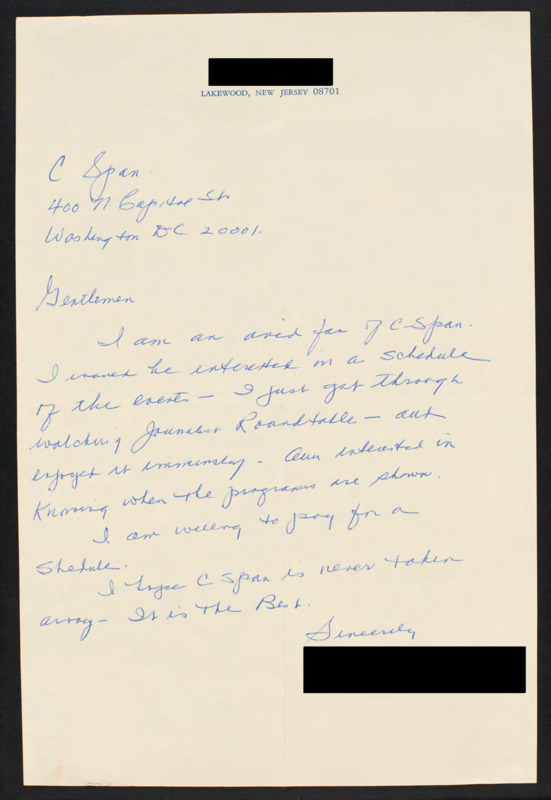 LAKEWOOD, NEW JERSEY 08701
C Span.
400 N Capitol St
Washington DC 20001.
Gentlemen
I am an avid fan of C-Span.
I would be interested in a schedule
of the events - I just got through
watching Journalist Roundtable - and
enjoyed it immensely - Am interested in
Knowing when the programs are shown.
I am willing to pay for a
Shedule.
I hope C Span is never taken
away - It is the Best.
Sincerely